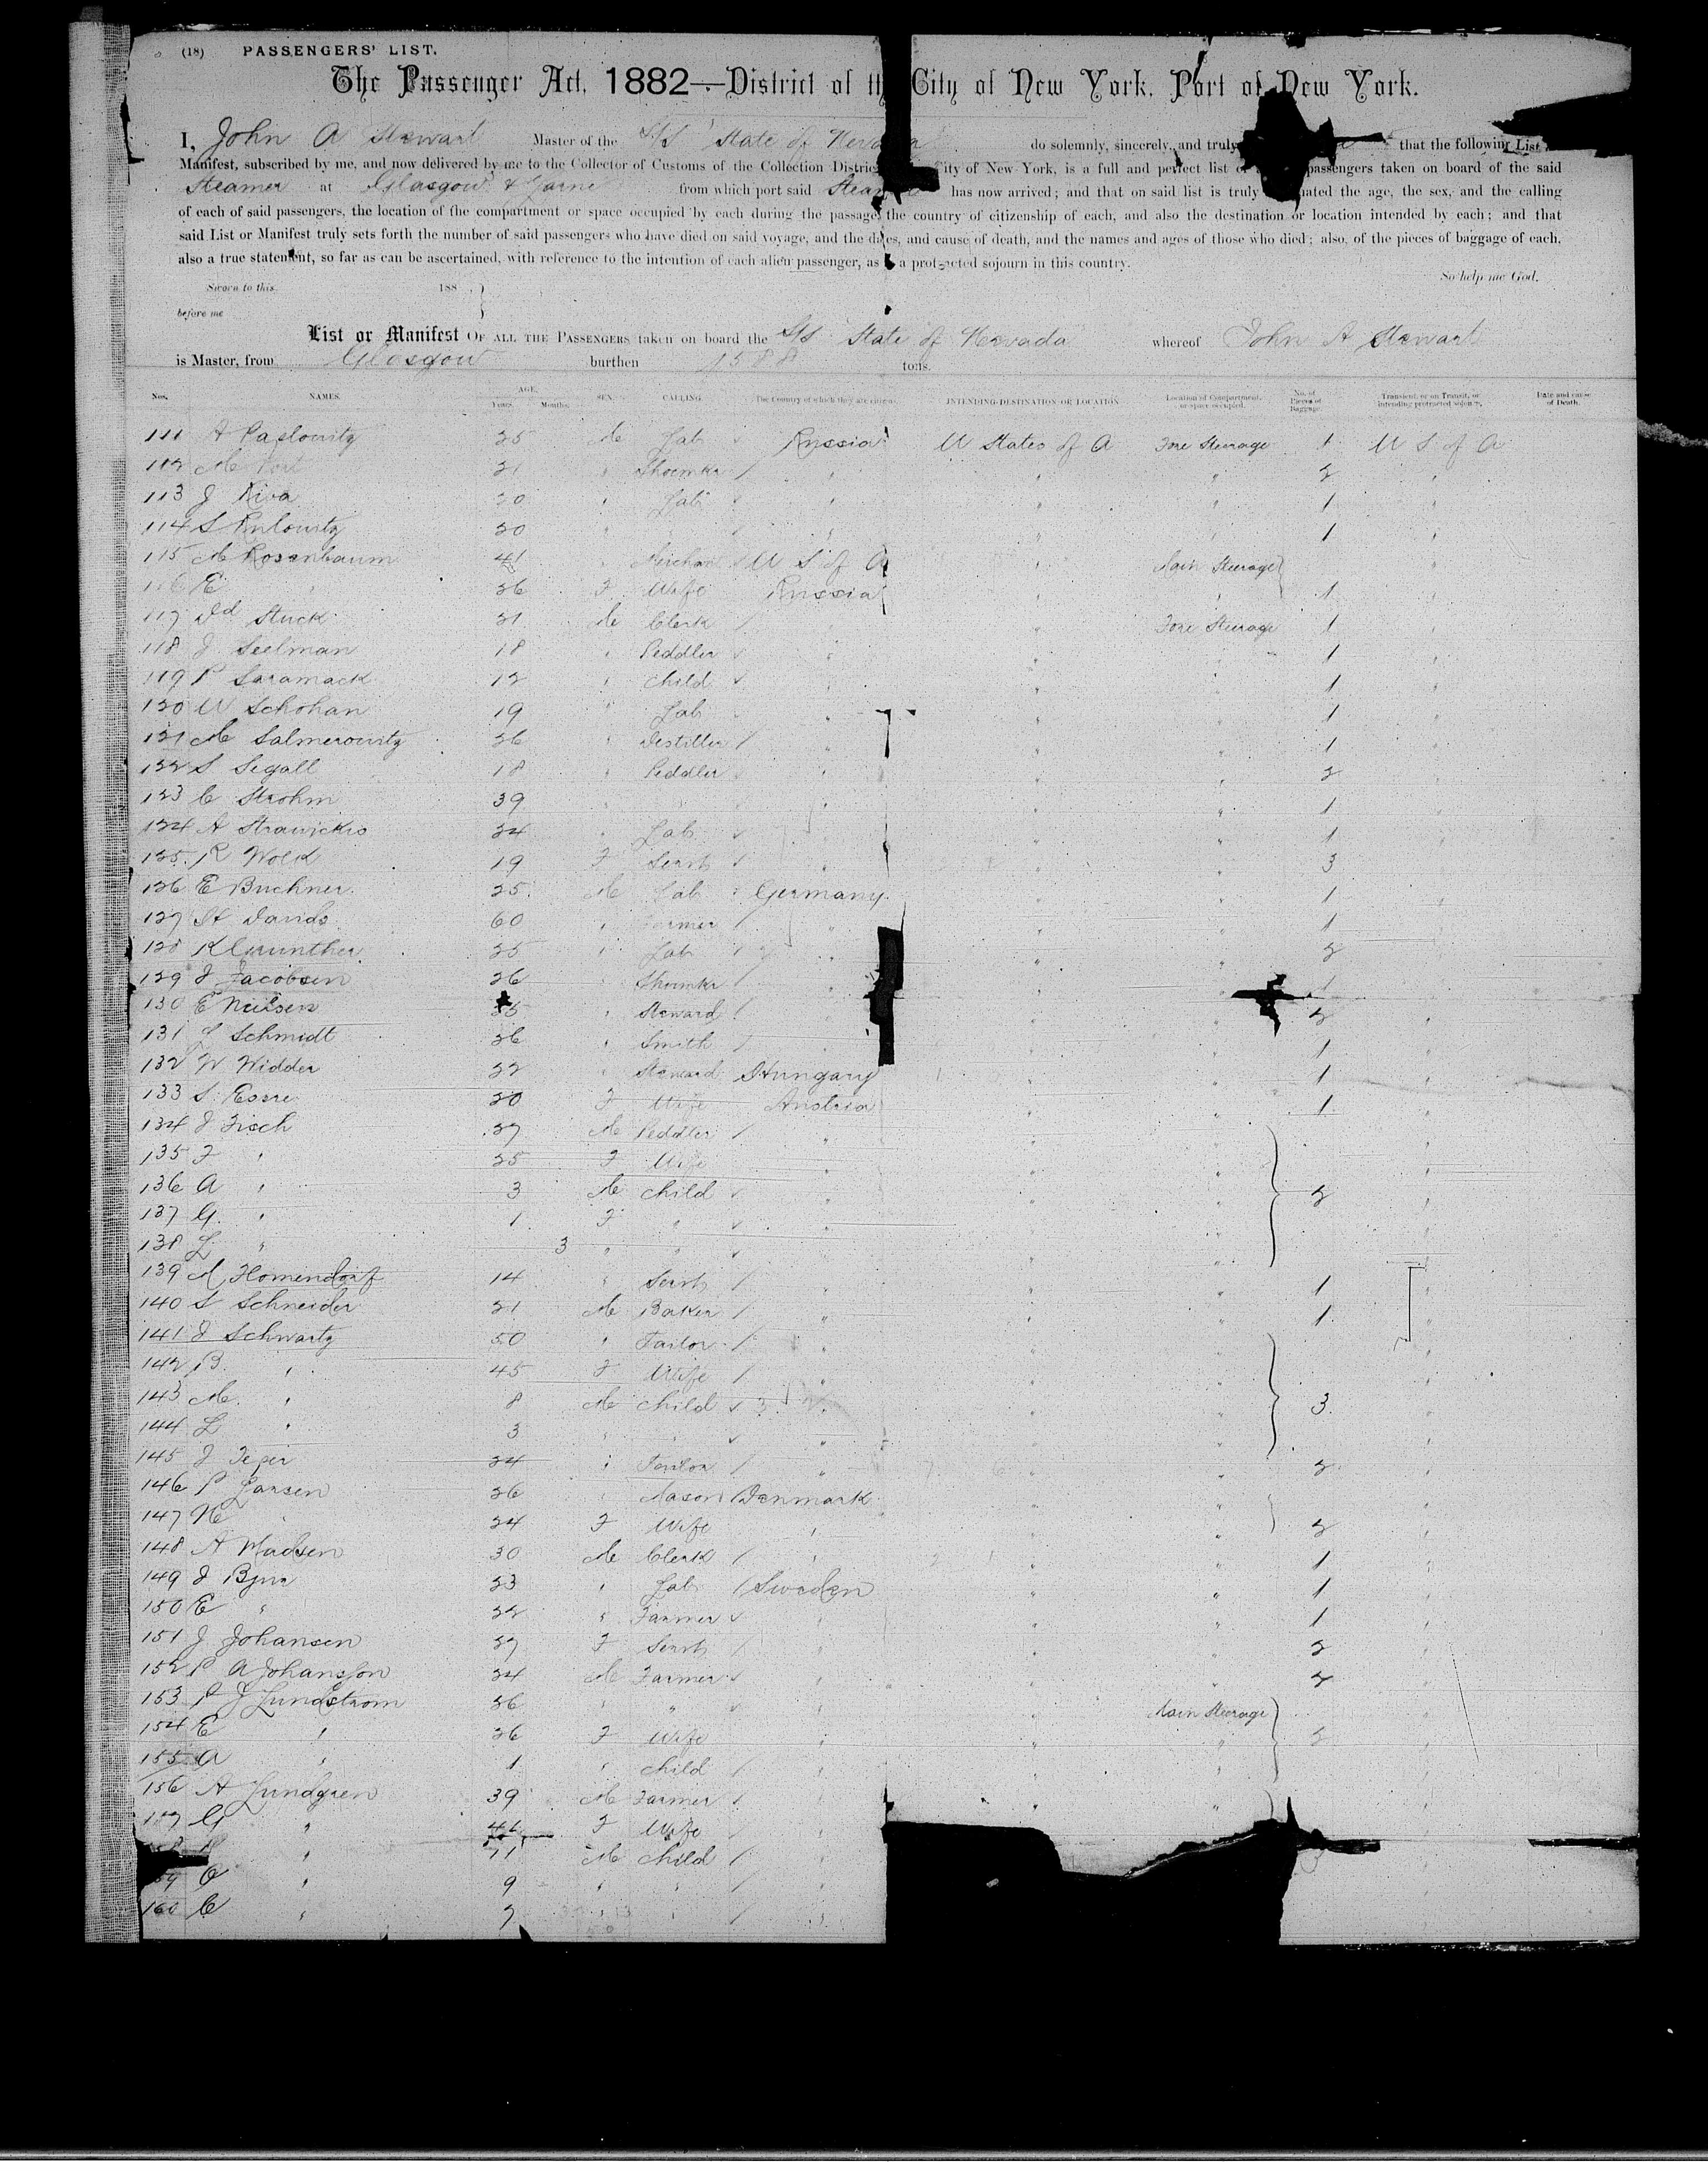 (18) PASSENGERS' LIST.
The Passenger Act, 1882—District of the City of New York, Port of New York.
I, John A Stewart Master of the S/S State of Nevada do solemnly, sincerely, and truly that the following List
Manifest, subscribed by me, and now delivered by me to the Collector of Customs of the Collection District City of New York, is a full and perfect list of passengers taken on board of the said
Steamer at Glasgow & Larne from which port said Steamer has now arrived; and that on said list is truly the age, the sex, and the calling
of each of said passengers, the location of the compartment or space occupied by each during the passage, the country of citizenship of each, and also the destination or location intended by each; and that
said List or Manifest truly sets forth the number of said passengers who have died on said voyage, and the dates, and cause of death, and the names and ages of those who died; also, of the pieces of baggage of each,
also a true statement, so far as can be ascertained, with reference to the intention of each alien passenger, as to a protracted sojourn in this country.
So help me God.
Sworn to this 188
before me
List or Manifest OF ALL THE PASSENGERS taken on board the S/S State of Nevada whereof John A Stewart
is Master, from Glasgow burthen 1588 tons.
Nos. NAMES. AGE. Years. Months. SEX. CALLING. The Country of which they are citizens. INTENDING DESTINATION OR LOCATION Location of Compartment, or space occupied. No. of Pieces of Baggage. Transient, or on Transit, or intending protracted sojourn. Date and cause of Death.
111 A Paslowitz 25 M Lab Russia U States of A Fore Steerage 1 U S of A
112 M 21 " Shoemkr " " " 2 "
113 J Riva 20 " Lab " " " 1 "
114 S 20 " " " " " 1 "
115 M Rosenbaum 41 " U S of A " Main Steerage "
116 E " 26 F Wife Russia " " 1 "
117 Dd Stuck 21 M Clerk " " Fore Steerage 1 "
118 J Seelman 18 " Peddler " " " 1 "
119 P Saramack 12 " Child " " " 1 "
120 W Schohan 19 " Lab " " " 1 "
121 M Salmerowitz 26 " Distiller " " " 1 "
122 S Segall 18 " Peddler " " " 2 "
123 C Strohm 39 " " " " " 1 "
124 A 24 " Lab " " " 1 "
125 R Wold 19 F Servt " " " 3 "
126 E Buchner 25 M Lab Germany " " 1 "
127 H Davids 60 " Farmer " " " 1 "
128 K Gunther 25 " Lab " " " 2 "
129 J Jacobsen 26 " Shoemkr " " " 1 "
130 E Neilsen " Steward " " " 2 "
131 L Schmidt 26 " Smith " " " 1 "
132 W Widder 22 " Steward Hungary " " 1 "
133 S Essre 20 F Wife Austria " " 1 "
134 J Fisch 27 M Peddler " " " "
135 F " 25 F Wife " " " "
136 A " 3 M Child " " " 2 "
137 G " 1 F " " " " "
138 L " 3 " " " " " "
139 M Homendorf 14 " Servt " " " 1 "
140 S Schneider 21 M Baker " " " 1 "
141 J Schwartz 50 " Tailor " " " "
142 B " 45 F Wife " " " "
143 M " 8 M Child " " " 3 "
144 L " 3 " " " " " "
145 J 24 " Tailor " " " 2 "
146 P Larsen 26 " Mason Denmark " " "
147 N " 24 F Wife " " " 2 "
148 A Madsen 30 M Clerk " " " 1 "
149 J 23 " Lab Sweden " " 1 "
150 E " 22 " Farmer " " " 1 "
151 J Johansen 27 F Servt " " " 2 "
152 P A Johansson 24 M Farmer " " " 2 "
153 P J Lundstrom 26 " " " " Main Steerage "
154 E " 26 F Wife " " " 2 "
155 A " 1 " Child " " " "
156 A Lundgren 39 M Farmer " " " "
157 G " F Wife "
" 11 M Child "
O " 9 " " "
160 C " 7 " " "